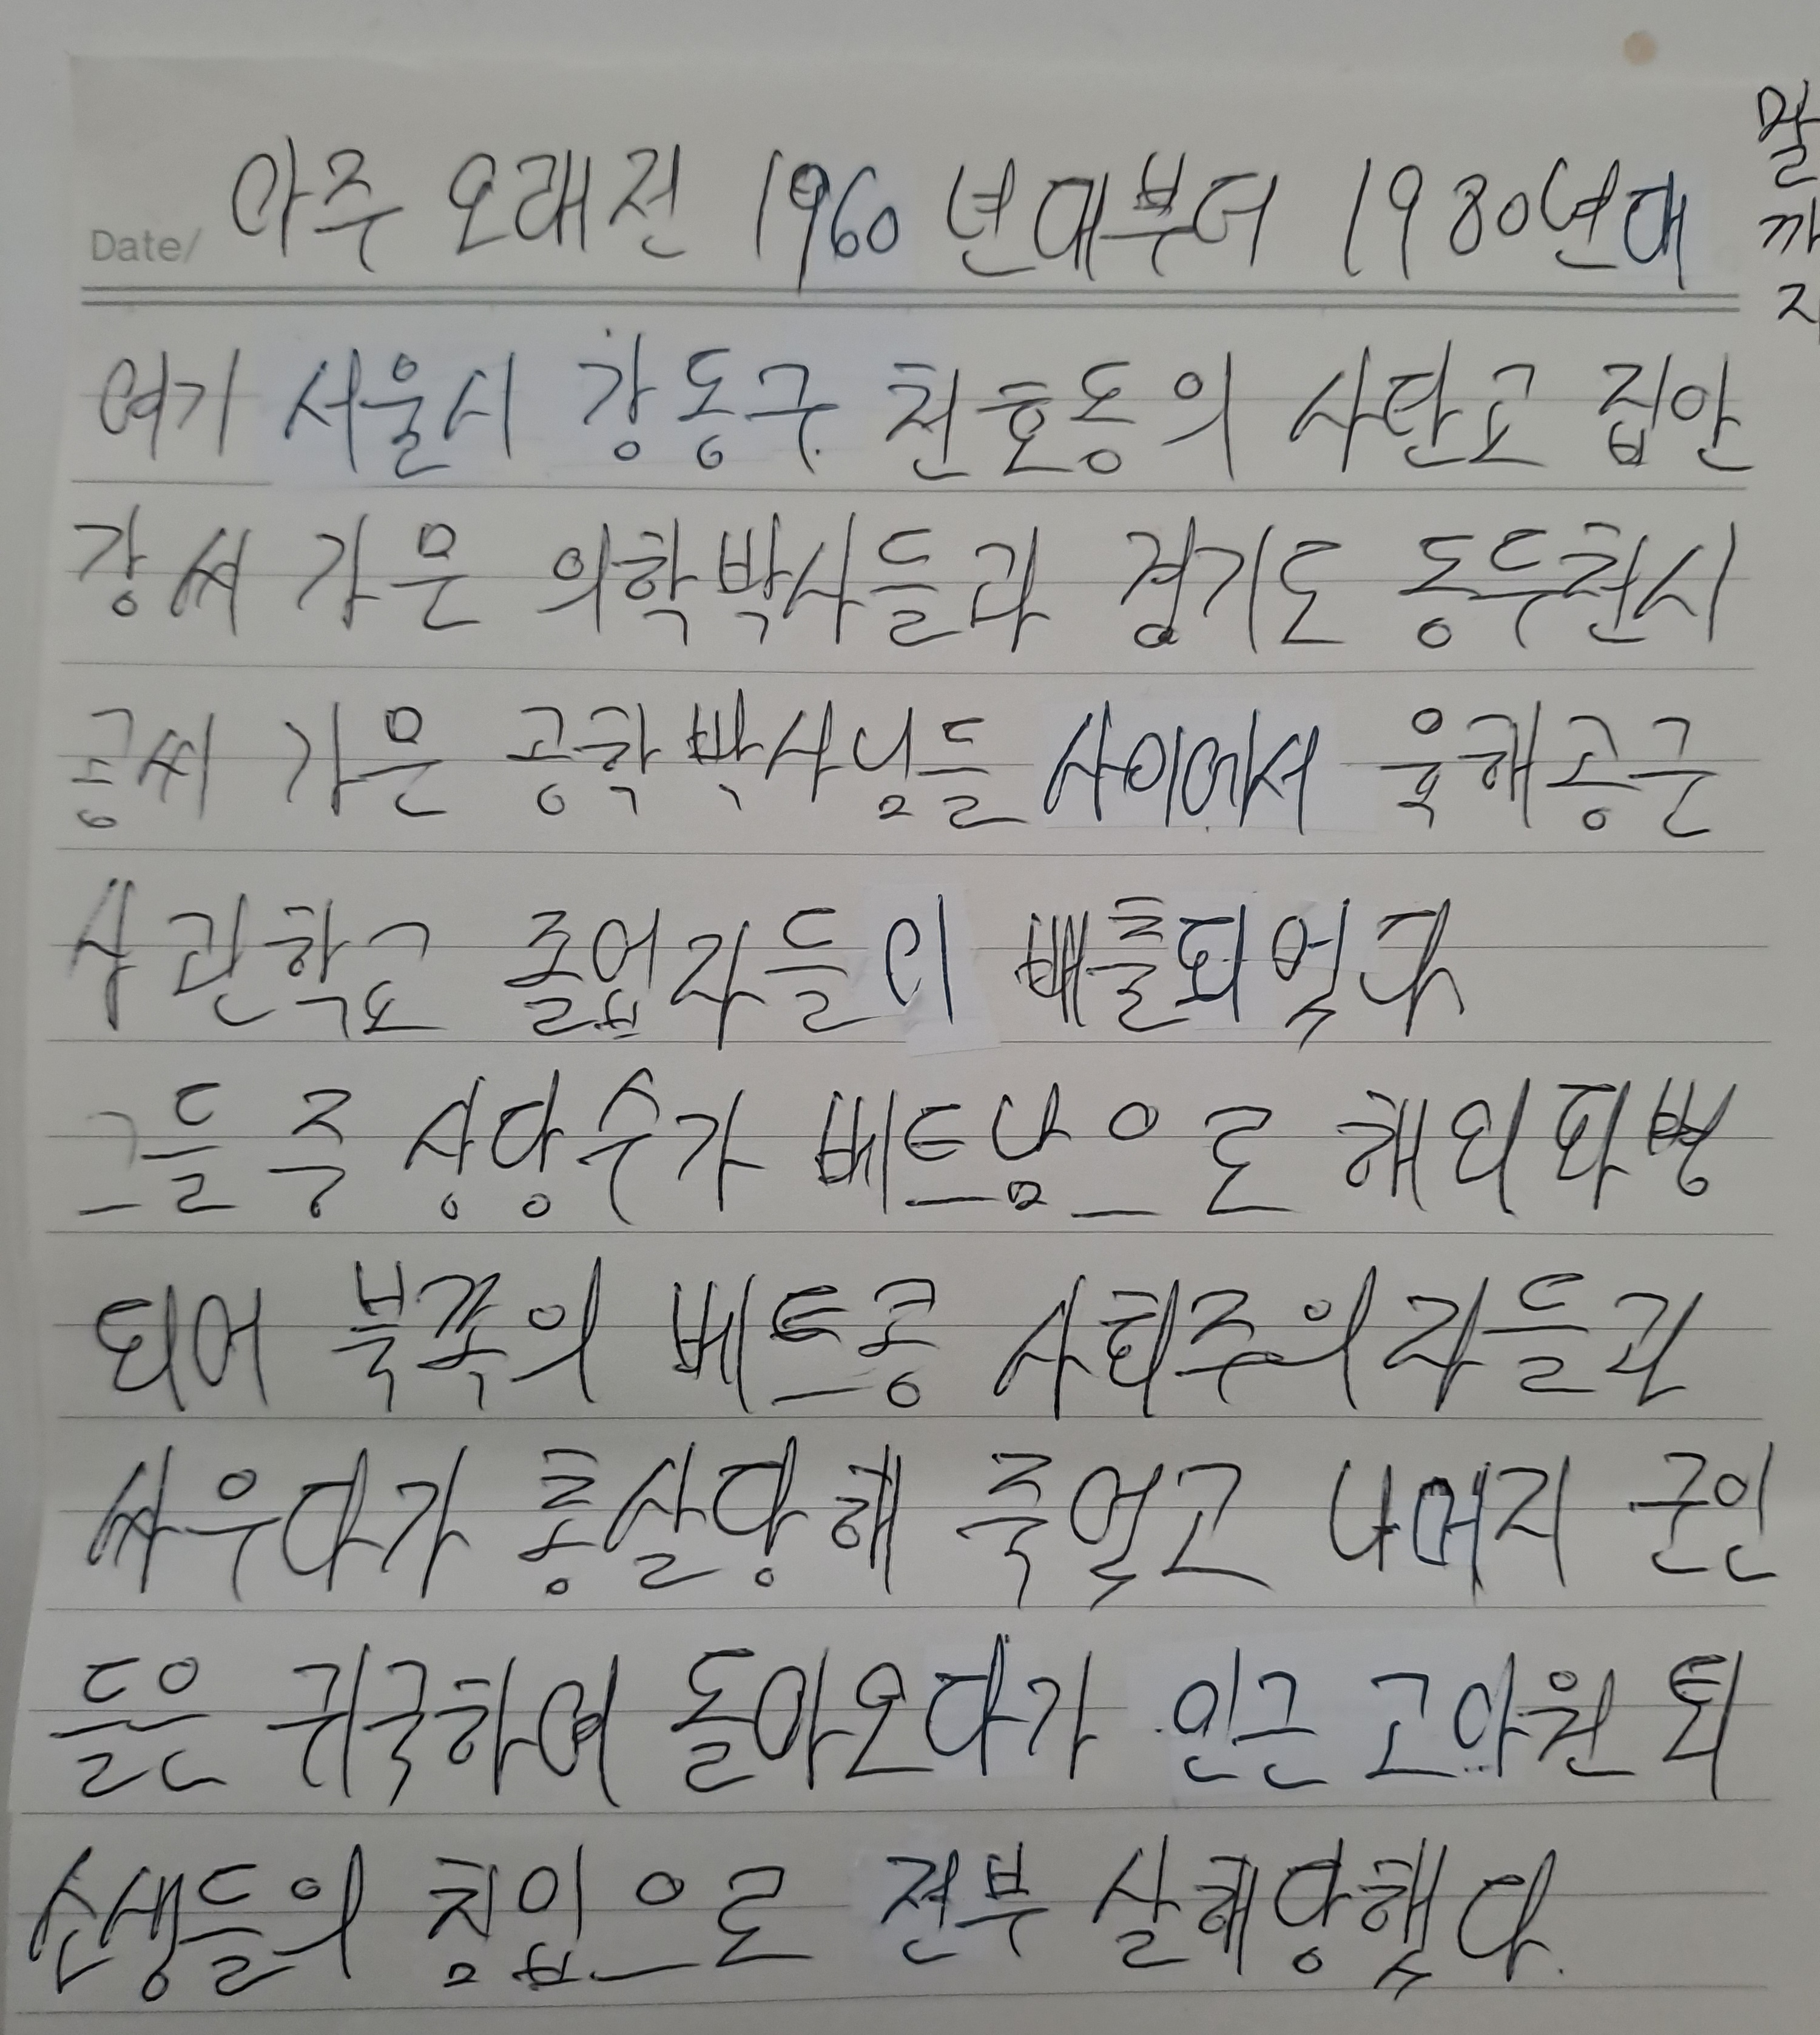 Date/ 아주 오래전 1960년대부터 1980년대
말까지
여기 서울시 강동구 천호동의 사탄고 집안
강씨 가문 의학박사들과 경기도 동두천시
공씨 가문 공학박사님들 사이에서 육해공군
사관학교 졸업자들이 배출되엇다
그들 중 상당수가 베트남으로 해외파병
되어 북쪽의 베트콩 사회주의자들과
싸우다가 총살당해 죽엇고 나머지 군인
들은 귀국하여 돌아오다가 인근 고아원 퇴
소생들의 침입으로 전부 살해당햇다.